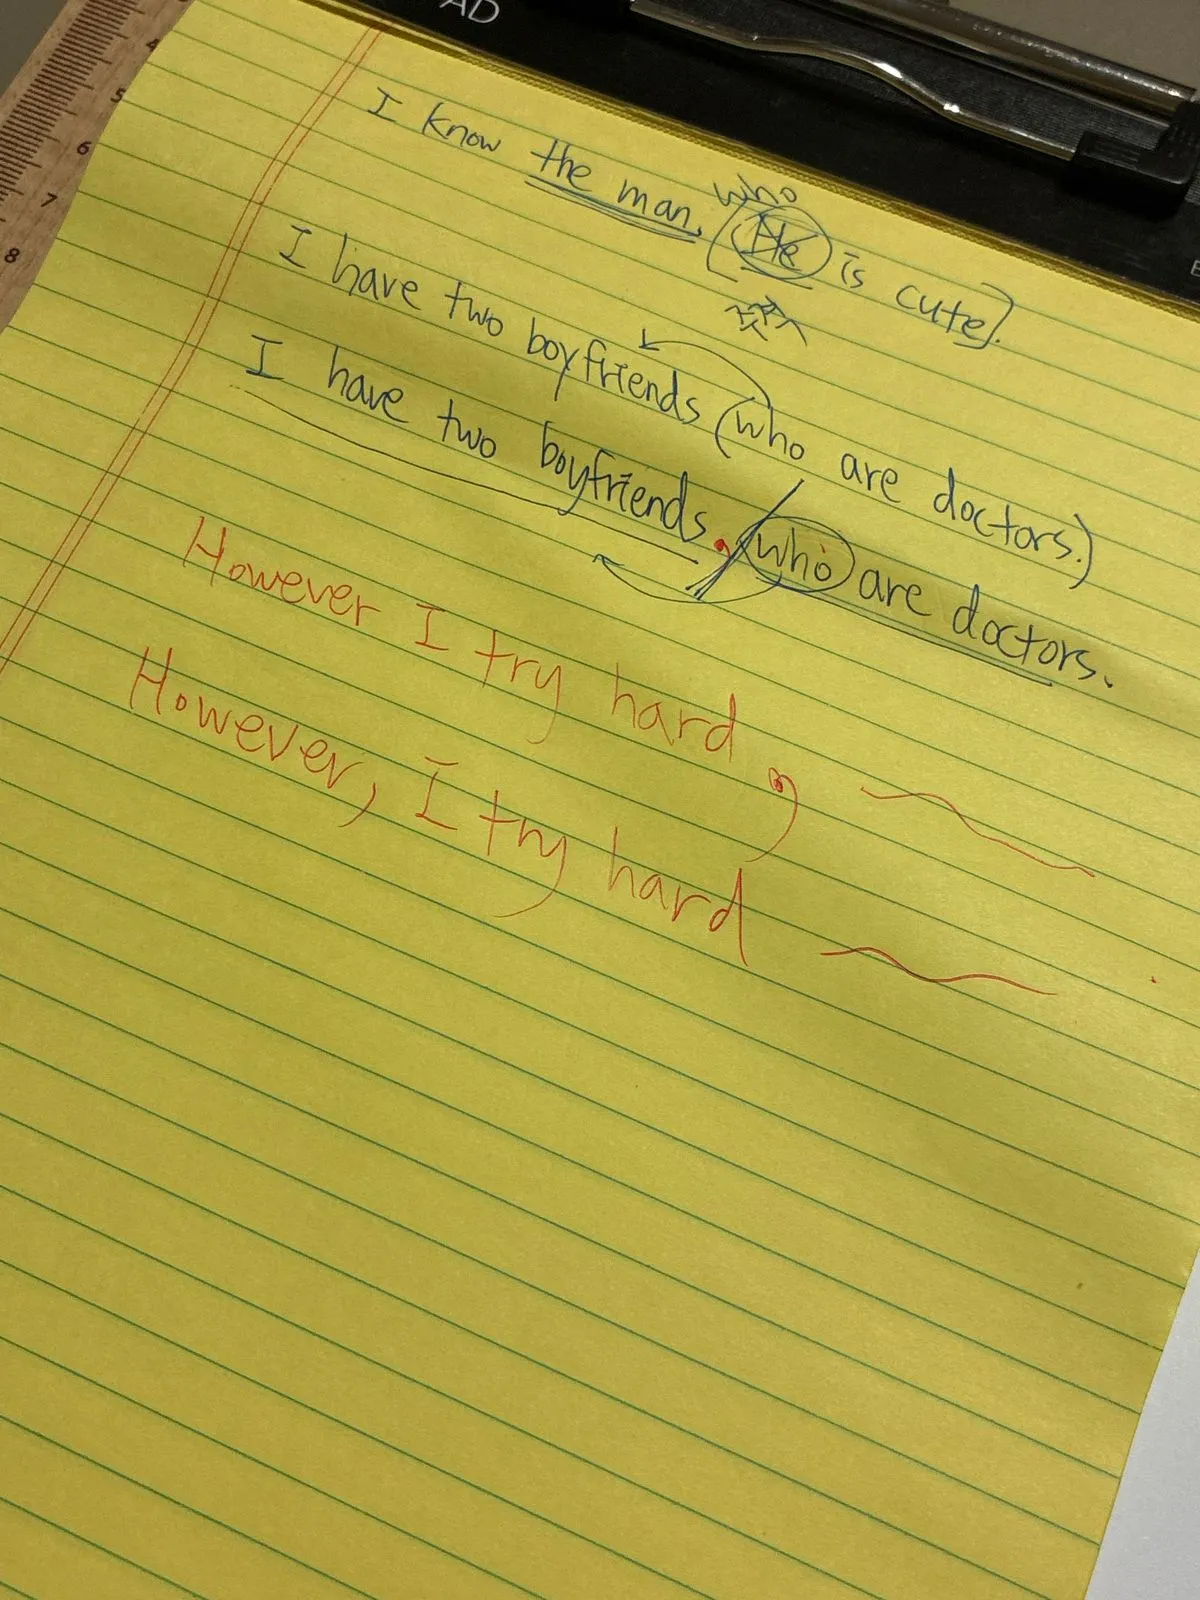 AD
4
5
6
7
8
who
I know the man. [He is cute].
주격
I have two boyfriends (who are doctors.)
I have two boyfriends, who are doctors.
However I try hard,
However, I try hard